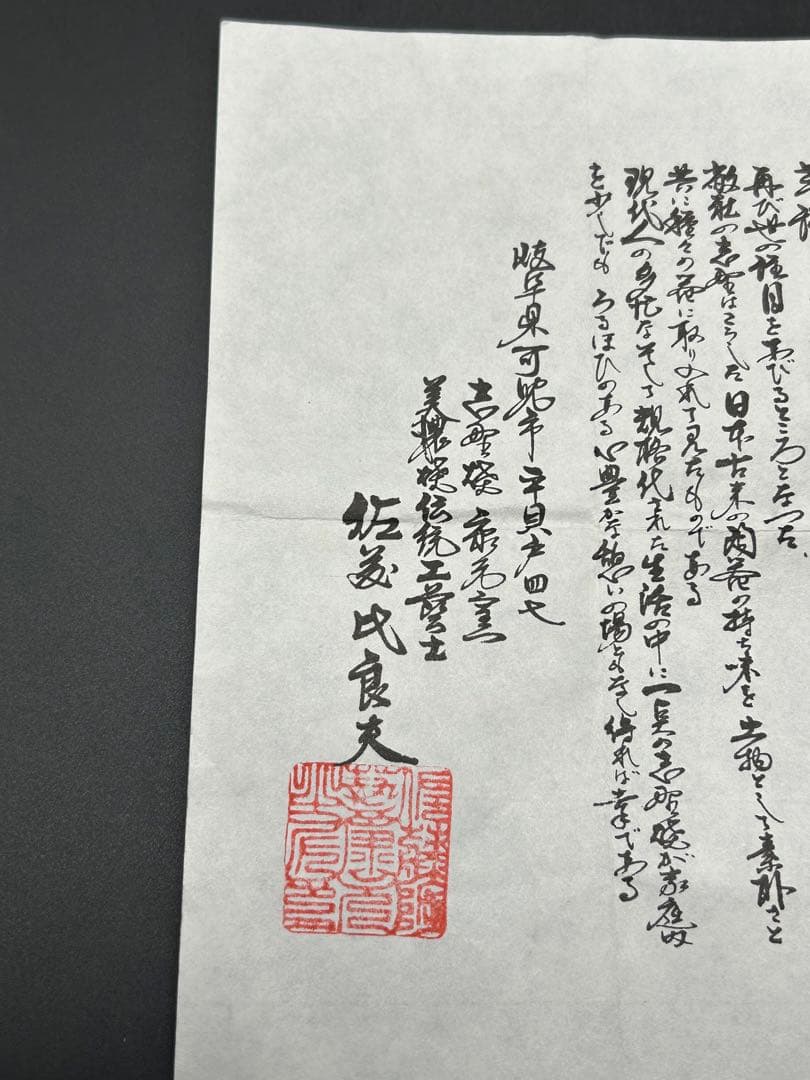 再び世の注目をあびるところとなった
敝社の志野はこうした日本古来の陶器の持ち味を土物として素朴さと
共に種々の器に取り入れて見たものである
現代人の多忙なそして規格代された生活の中に一点の志野焼が家庭内
を少しでもうるほひのある心豊かな憩いの場ともなし得れば幸である
岐阜県可児市平貝戸四七
志野焼 元窯
美濃焼伝統工藝士
佐 比良夫